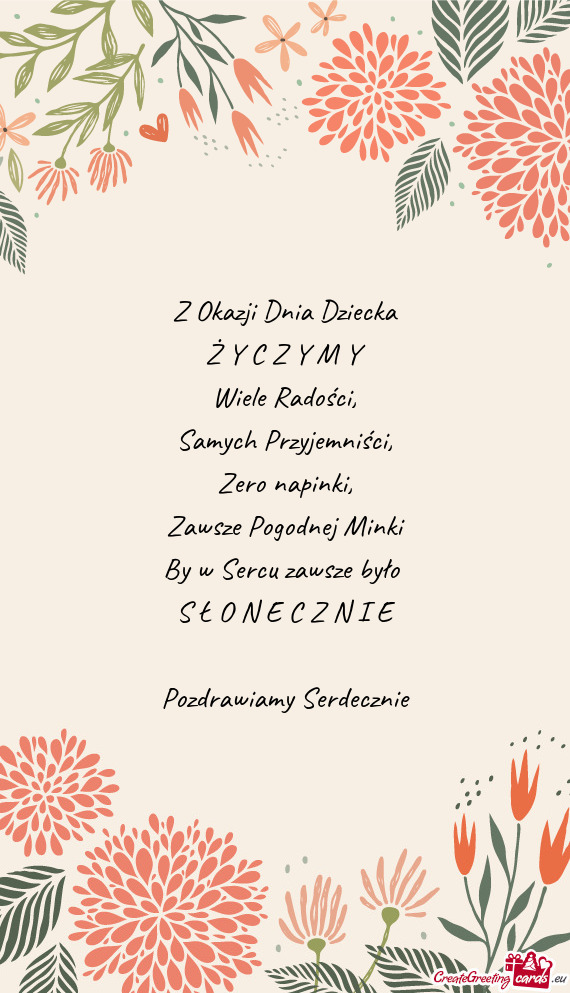 Z Okazji Dnia Dziecka
Ż Y C Z Y M Y
Wiele Radości,
Samych Przyjemniści,
Zero napinki,
Zawsze Pogodnej Minki
By w Sercu zawsze było
S Ł O N E C Z N I E
Pozdrawiamy Serdecznie
CreateGreeting cards .eu